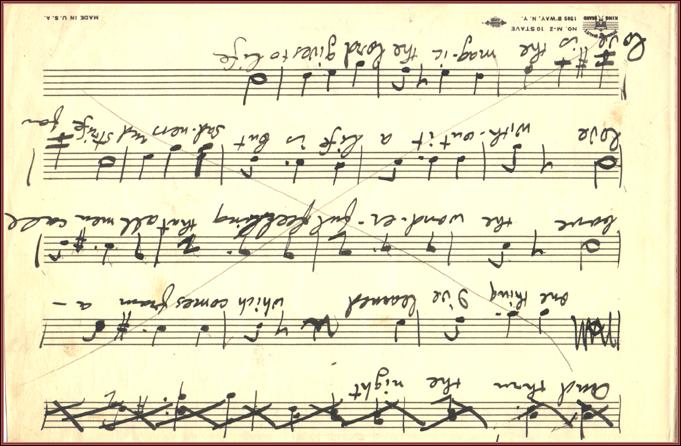 And thru the night
one thing I've learned which comes from a -
bove the wond-er-ful feeling that all men call
love with-out it a life is but sad-ness and strife for
love is the mag-ic the Lord gives to life
KING BRAND
NO. M-2 10 STAVE
1595 B'WAY, N. Y.
MADE IN U. S. A.